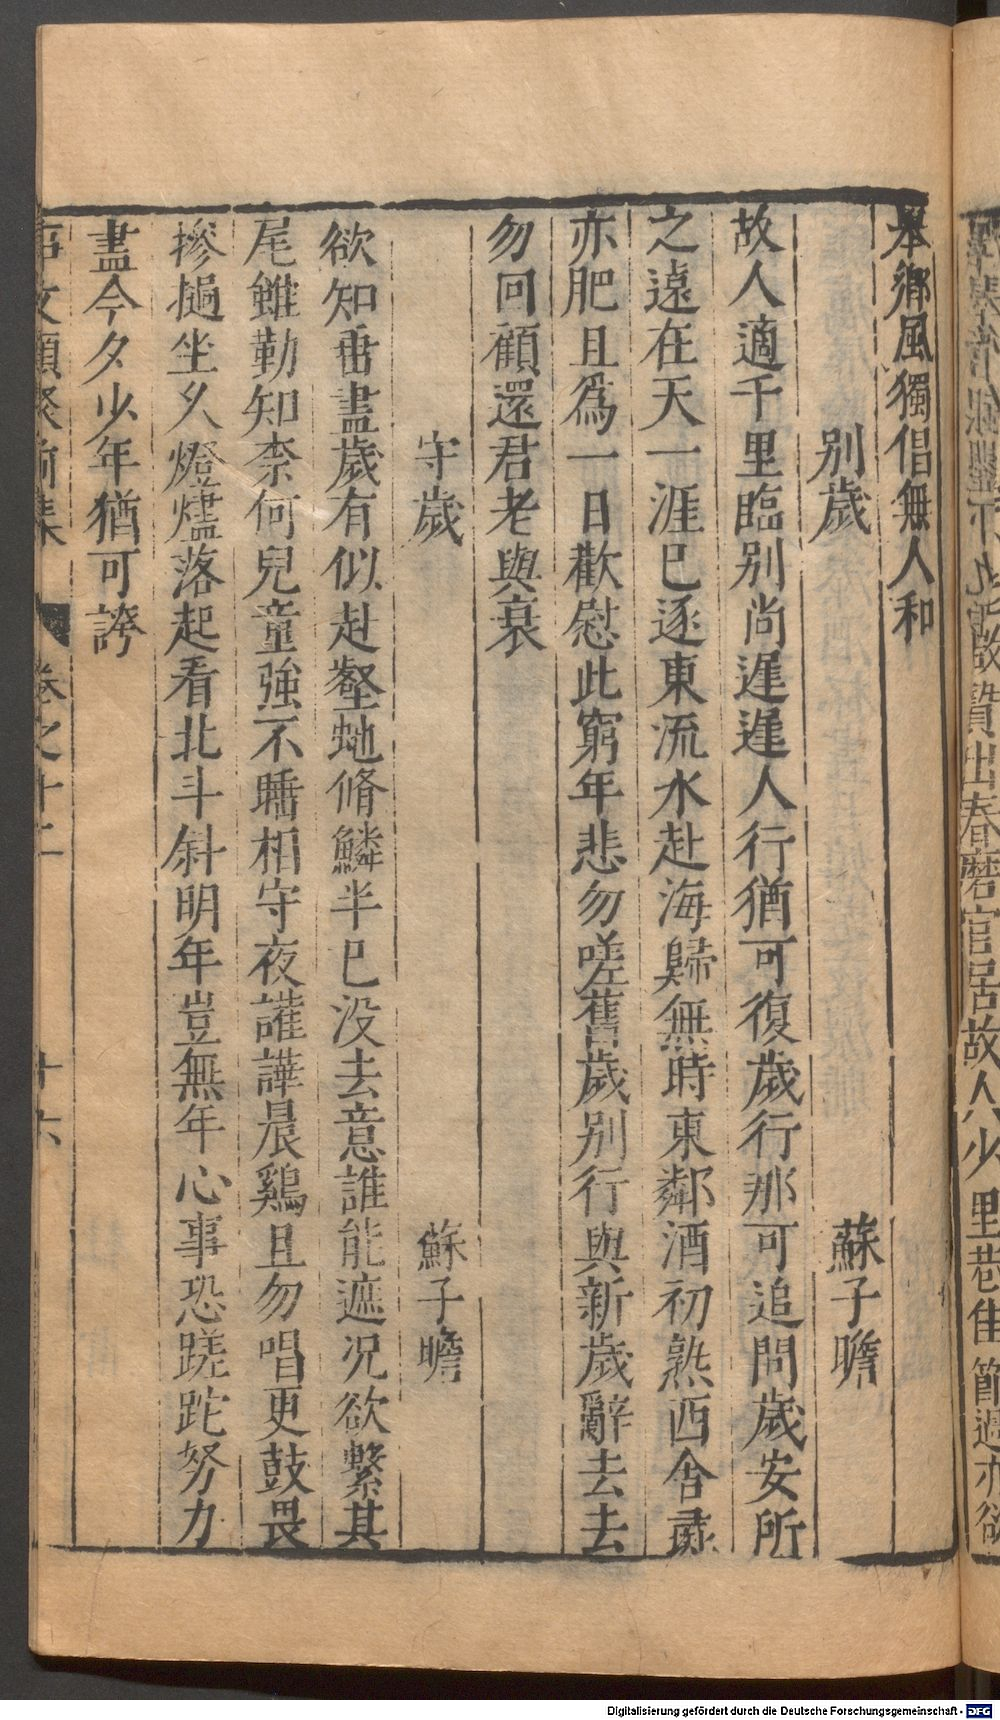 舉鄉風獨倡無人和
別歲　蘇子瞻
故人適千里臨別尚遲遲人行猶可復歲行那可追問歲安所
之遠在天一涯巳逐東流水赴海歸無時東鄰酒初熟西舍彘
亦肥且爲一日歡慰此窮年悲勿嗟舊歲別行與新歲辭去去
勿回顧還君老與衰
守歲　蘇子瞻
欲知垂盡歲有似赴壑虵脩鱗半巳没去意誰能遮况欲繫其
尾雖勤知柰何兒童強不睡相守夜讙譁晨鷄且勿唱更鼓畏
摻撾坐久燈燼落起看北斗斜明年豈無年心事恐蹉跎努力
盡今夕少年猶可誇
事文類聚前集　卷之十二　十六
Digitalisierung gefördert durch die Deutsche Forschungsgemeinschaft - DFG